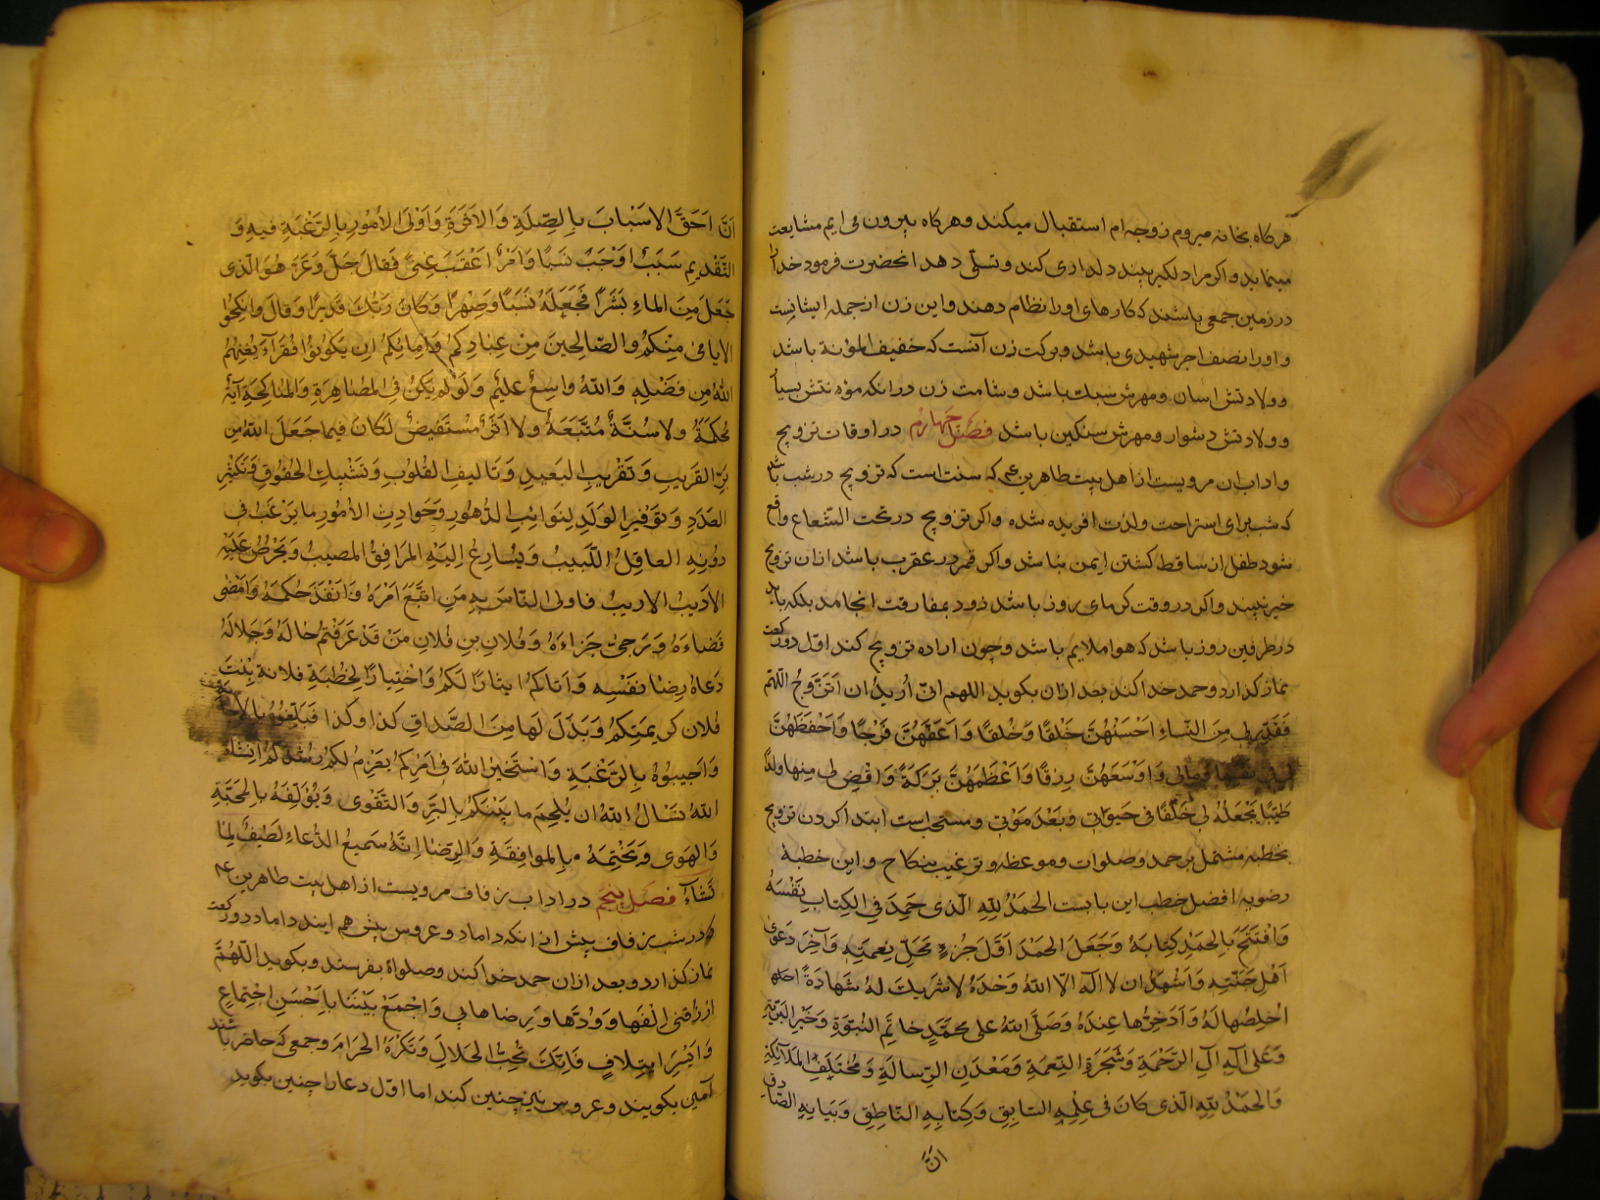 هرکاه بخانه میروم زوجه‌ام استقبال میکند و هرکاه بیرون می ایم مشایعت
مینماید و اکر مرا دلکیر بیند دلداری کند و تسلی دهد انحضرت فرمود خدا را
در زمین جمعی باشند که کارهای او را نظام دهند و این زن از جمله ایشانست
و او را نصف اجر شهیدی باشد و برکت زن آنست که خفیف المؤنة باشد
و ولادتش اسان و مهرش سبک باشد و شامت زن در انکه مؤنه‌تش بسیار
و ولادتش دشوار و مهرش سنکین باشد فصل چهارم در اوقات تزویج
و اداب ان مرویست از اهل بیت طاهرین ع که سنت است که تزویج در شب باشد
که شب برای استراحت ولذت افریده شده و اکر تزویج در تحت الشعاع واقع
شود طفل از ساقط کشتن ایمن نباشد و اکر قمر در عقرب باشد از ان تزویج
خیر نبیند و اکر در وقت کرمای روز باشد زود بمفارقت انجامد بلکه باید
در طرفین روز باشد که هوا ملایم باشد و چون اراده تزویج کند اول دو رکعت
نماز کذارد و حمد خدا کند بعد ازان بکوید اللهم انّی اُریدُ ان اَتَزَوَّجُ اللّهمّ
فَقَدِّر لی مِنَ النّساءِ اَحْسَنَهُنَّ خَلْقًا وَخُلقًا وَ اَعَفَّهُنَّ فَرْجًا وَاَحْفَظَهُنَّ
لی فی نفسها و مالی وَ اَوْسَعَهُنَّ رِزقًا وَ اَعْظَمَهُنَّ بَرَکَةً وَ اقْضِ لی مِنها ولدًا
طَیِّبًا یَجْعَلُهُ لی خَلَفًا فی حَیوتی وبَعْدَ مَوْتی و مستحب است ابتدا کردن تزویج
بخطبه مشتمل بر حمد و صلوات و موعظه و ترغیب بنکاح و این خطبهٔ
رضویه افضل خطب این بابست الحَمدُ للهِ الّذی حَمِدَ فِی الکِتابِ نَفْسَهُ
وَ افْتَتَحَ بِالحَمْدِ کِتابَهُ وَ جَعَلَ الحَمْدَ اَوَّلَ جُزءٍ مَحَلِّ نِعمَتِهِ وَ آخِرَ دَعْوی
اَهْلِ جَنَّتِهِ وَ اَشْهَدُ ان لا اِلهَ اِلّا اللهُ وَحْدَهُ لا شریکَ لَهُ شَهادَةً
اُخلِصُها لَهُ وَ اَدَّخِرُها عِندَهُ وَصَلَّی اللهُ علی محمّدٍ خاتَمِ النُّبُوَّةِ وَ خَیْرِ البَرِیَّةِ
وَ عَلی آلِهِ آلِ الرَّحْمَةِ وَ شَجَرَةِ النِّعمَةِ وَ مَعْدَنِ الرِّسالَةِ وَ مُختَلَفِ المَلآئِکَةِ
وَالحَمْدُ للهِ الّذی کانَ فی عِلْمِهِ السّابِقِ وَ کِتابِهِ النّاطِقِ وَ بَیانِهِ الصّادِقِ
انَّ
اَنَّ اَحَقَّ الاَسْبابَ بِالصِّلَةِ وَ الاَثَرَةِ وَ اَوْلَی الاُمُورِ بِالرَّغْبَةِ فیهِ وَ
التَّقْدیمِ سَبَبٌ اَوْجَبَ نَسَبًا وَ اَمْرٌ اَعْقَبَ غِنیً فَقالَ جَلَّ وَ عَزَّ هُوَ الّذی
جَعَلَ مِنَ الماءِ بَشَرًا فَجَعَلَهُ نَسَبًا وَ صِهْرًا وَ کانَ رَبُّکَ قَدیرًا وَ قالَ وَ انْکِحُوا
الاَیامی مِنْکُمْ وَ الصّالِحینَ مِنْ عِبادِکُمْ وَ اِمائِکُمْ اِن یَکُونُوا فُقَرآءَ یُغنِهِمُ
اللهُ مِن فَضْلِهِ وَ اللهُ واسِعٌ عَلیمٌ وَ لَوْ لَمْ یَکُنْ فِی المُصاهِرَةِ وَ المُناکَحَةِ آیَةٌ
مُحکَمَةٌ وَ لا سُنَّةٌ مُتَّبَعَةٌ وَ لا اَثَرٌ مُسْتَفیضٌ لَکانَ فیما جَعَلَ اللهُ مِن
بِرِّ القَریبِ وَ تَقْریبِ البَعیدِ وَ تَالیفِ القُلُوبِ وَ تَشْبیکِ الحُقُوقِ وَ تَکثیرِ
العَدَدِ وَ تَوْفیرِ الوَلَدِ لِنَوائِبِ الدُّهُورِ وَ حَوادِثِ الاُمُورِ ما یَرْغَبُ فی
دُونِهِ العاقِلُ اللَّبیبُ وَ یُسارِعُ اِلَیْهِ المُوَافِقُ المُصیبُ وَ یَحْرُصُ عَلَیْهِ
الاَدیبُ الاَریبُ فاَولَی النّاسِ بِهِ مَنِ اتَّبَعَ اَمْرَهُ وَ اَنْفَذَ حُکْمَهُ وَ اَمْضی
قَضاءَهُ وَ رَجی جَزاءَهُ وَ فُلانُ بنُ فُلانٍ مَنْ قَدْ عَرَفْتُمْ حالَهُ وَ جَلالَهُ
دَعاهُ رِضا نَفْسِهِ وَ اَتاکُمْ ایثارًا لَکُمْ وَ اخْتِیارًا لِخِطْبَةِ فلانة بِنْتِ
فُلان کَریمَتِکُمْ وَ بَذَلَ لَها مِنَ الصَّداقِ کذا و کذا فَتَلَقَّوْهُ بِالاِجابَةِ
وَ اَجیبُوهُ بِالرَّغْبَةِ وَ اسْتَخیرُوا اللهَ فی اَمْرِکُمْ یَعْزِمْ لَکُمْ رُشْدَکُمْ اِنشاءَ
اللهُ نَسْاَلُ اللهَ ان یُلْحِمَ ما بَیْنَکُمْ بِالبِرِّ وَ التَّقْوی وَ یُؤَلِّفَهُ بِالمَحَبَّةِ
وَ الهَوی وَ یَخْتِمَهُ بِالمُوافِقَةِ وَ الرِّضا اِنَّهُ سَمیعُ الدُّعاءِ لَطیفٌ لِما
یَشاءُ فصل پنجم در اداب زفاف مرویست از اهل بیت طاهرین ع
که در شب زفاف پیش از انکه داماد و عروس پیش هم ایند داماد دو رکعت
نماز کذارد و بعد ازان حمد خدا کند و صلواة بفرستد و بکوید اللّهُمَّ
ارْزُقنی اِلْفَها وَ وُدَّها وَ رِضاها بی وَ اجْمَعْ بَیْنَنا بِاَحْسَنِ اجْتِماعٍ
وَ اَیْسَرِ ایتِلافٍ فَاِنَّکَ تُحِبُّ الحَلالَ وَ تَکْرَهُ الحَرامَ و جمعی که حاضر باشند
آمین بکویند و عروس نیز چنین کند اما اوّل دعا را چنین بکوید